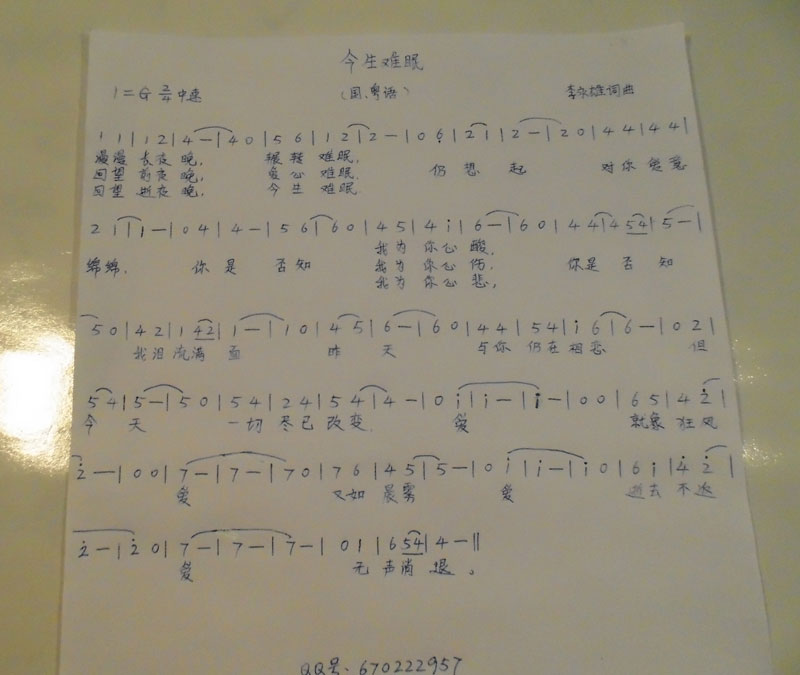 今生难眠
1=G 2/4 中速 (国、粤语) 李永雄词曲
1 1 | 1 2 | 4 — | 4 0 | 5 6 | 1 2 | 2 — | 0 6̣ | 2 1 | 2 — | 2 0 | 4 4 | 4 4 | 4 4 |
漫漫 长夜 晚, 辗转 难眠,
回望 前夜 晚, 爱心 难眠. 仍 想 起 对你 爱意
回望 逝夜 晚, 今生 难眠.
2 1 | 1 — | 0 4 | 4 — | 5 6 | 6 0 | 4 5 | 4 i | 6 — | 6 0 | 4 4 | 4 54 | 5 — |
我为 你心 酸,
绵绵. 你 是 否知 我为 你心 伤, 你是 否 知
我为 你心 悲,
5 0 | 4 2 | 1 42 | 1 — | 1 0 | 4 5 | 6 — | 6 0 | 4 4 | 5 4 | i 6 | 6 — | 0 2 |
我泪 流满 面 昨 天 与你 仍在 相恋 但
5 4 | 5 — | 5 0 | 5 4 | 2 4 | 5 4 | 4 — | 0 i | i — | i — | 0 0 | 6 5 | 4 2̇ |
今 天 一切 尽已 改变. 爱 就象 狂风
2̇ — | 0 0 | 7 — | 7 — | 7 0 | 7 6 | 4 5 | 5 — | 0 i | i — | i 0 | 6 i | 4̇ 2̇ |
爱 又如 晨雾 爱 逝去 不返
2̇ — | 2̇ 0 | 7 — | 7 — | 7 — | 0 1 | 6 54 | 4 — ‖
爱 无 声消 退。
QQ号、670222957